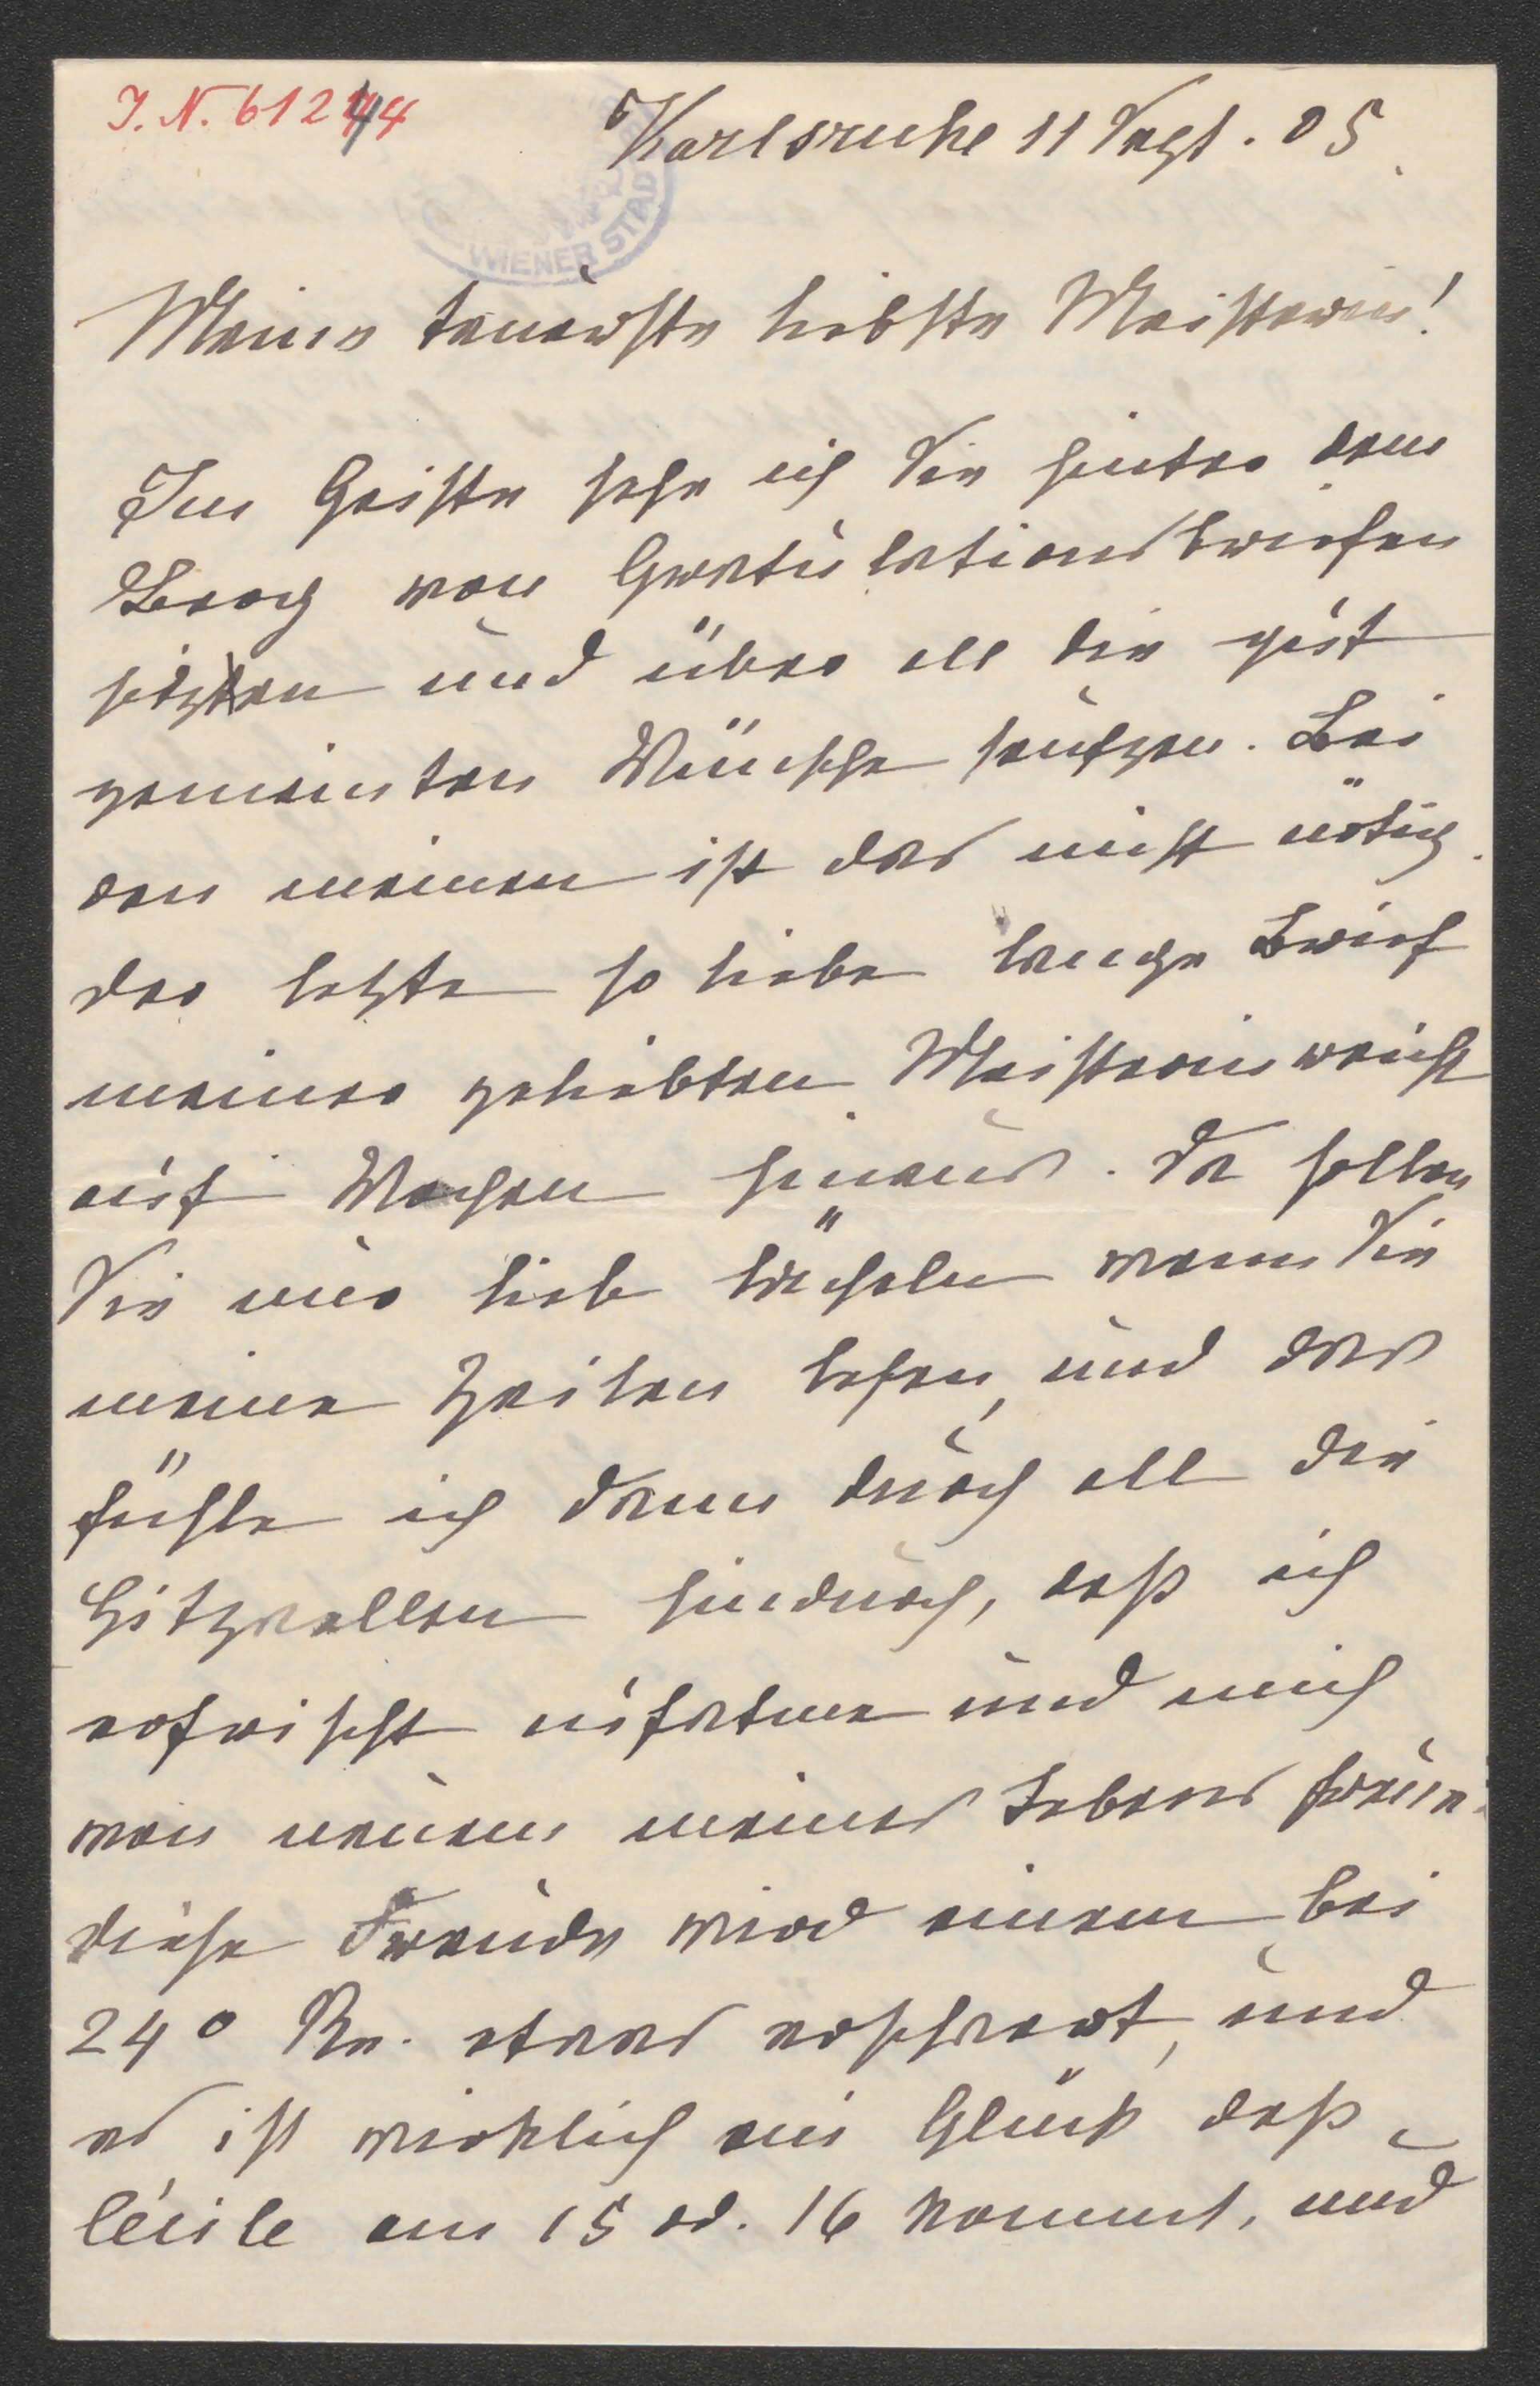 I. N. 61244
Karlsruhe 11 Sept. 05.
WIENER STAD
Meine teuerste liebste Meisterin!
Im Geiste sehe ich Sie hinter dem
Berg von Gratulationsbriefen
sitzen und über all die gut
gemeinten Wünsche seufzen. Bei
den meinen ist das nicht nötig.
der letzte so liebe lange Brief
meiner geliebten Meisterin reicht
auf Wochen hinaus. Da sollen
Sie nur lieb lächeln wenn Sie
meine Zeilen lesen, und das
fühle ich dann durch all die
Hitzwellen hindurch, daß ich
erfrischt aufatme und mich
von neuem meines Lebens freue.
diese Freude wird einem bei
24° Re. etwas erschwert, und
es ist wirklich ein Glück daß
Cécile am 15 od. 16 kommt, und